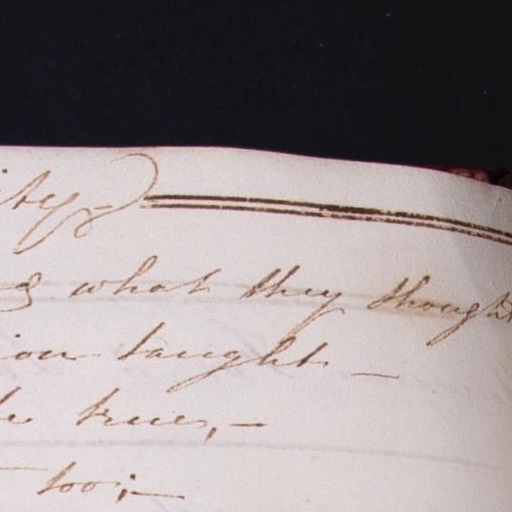 ity
what they thought
ion taught —
true, —
too; —